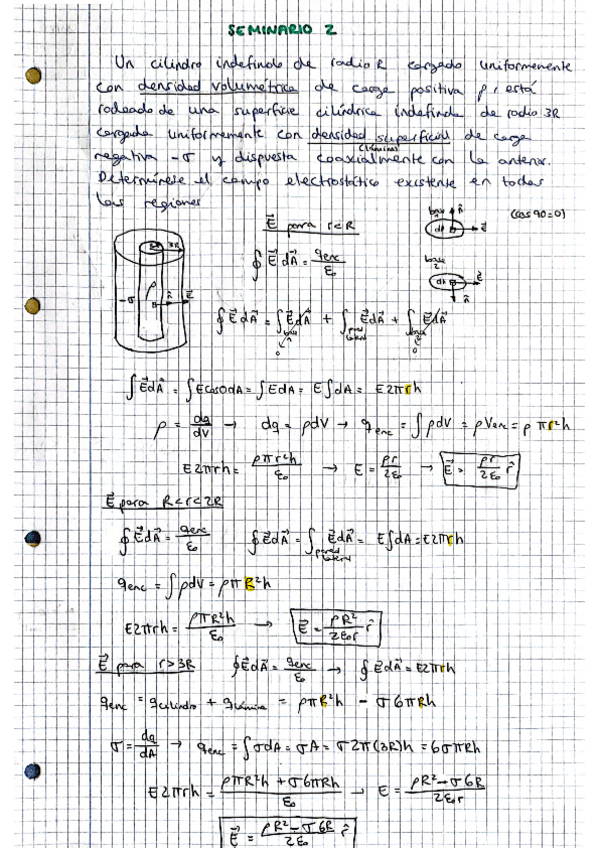 SEMINARIO 2
Un cilindro indefinido de radio R cargado uniformemente
con densidad volumétrica de carga positiva ρ, está
rodeado de una superficie cilíndrica indefinida de radio 3R
cargada uniformemente con densidad superficial de carga
(lámina)
negativa -σ y dispuesta coaxialmente con la anterior.
Determínese el campo electrostático existente en todas
las regiones
(cos 90=0)
E⃗ para r<R
base 1 n̂
dA⃗ E⃗
∮E⃗dA⃗ = qenc/ε₀
base 2
dA⃗ E⃗
n̂
R 3R
-σ ρ n̂ E⃗
∮E⃗dA⃗ = ∫base 1 E⃗dA⃗ + ∫pared lateral E⃗dA⃗ + ∫base 2 E⃗dA⃗
0 0
∫E⃗dA⃗ = ∫Ecos0dA = ∫EdA = E∫dA = E2πrh
ρ = dq/dV → dq = ρdV → qenc = ∫ρdV = ρVenc = ρπr²h
E2πrh = ρπr²h/ε₀ → E = ρr/2ε₀ → E⃗ = ρr/2ε₀ r̂
E⃗ para R<r<2R
∮E⃗dA⃗ = qenc/ε₀ ∮E⃗dA⃗ = ∫pared lateral E⃗dA⃗ = E∫dA = E2πrh
qenc = ∫ρdV = ρπR²h
E2πrh = ρπR²h/ε₀ → E⃗ = ρR²/2ε₀r r̂
E⃗ para r>3R ∮E⃗dA⃗ = qenc/ε₀ → ∮E⃗dA⃗ = E2πrh
qenc = qcilindro + qlámina = ρπR²h - σ6πRh
σ = dq/dA → qenc = ∫σdA = σA = σ2π(3R)h = 6σπRh
E2πrh = ρπR²h + σ6πRh/ε₀ → E = ρR² - σ6R/2ε₀r
E⃗ = ρR² - σ6R/2ε₀ r̂